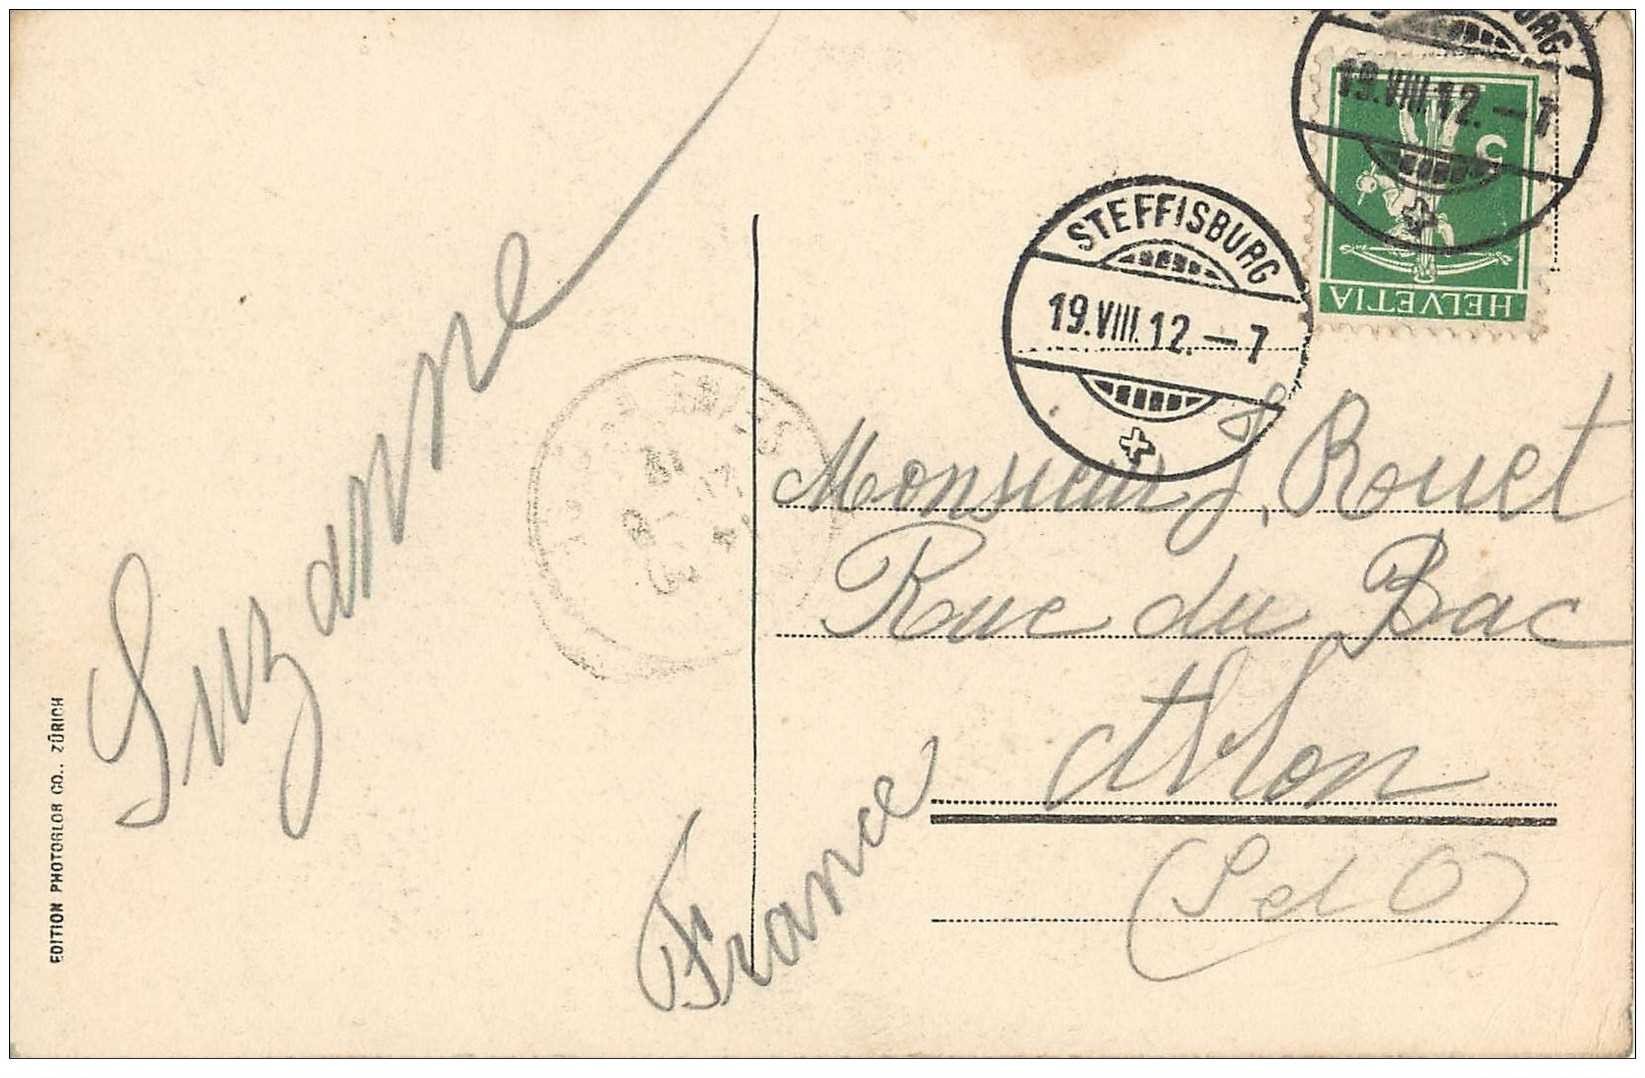 Suzanne
EDITION PHOTOGLOB CO., ZÜRICH
19.VIII.12.–7
5
HELVETIA
STEFFISBURG
19.VIII.12.–7
Monsieur J. Rouet
Rue du Bac
Athlon
(S et O)
France